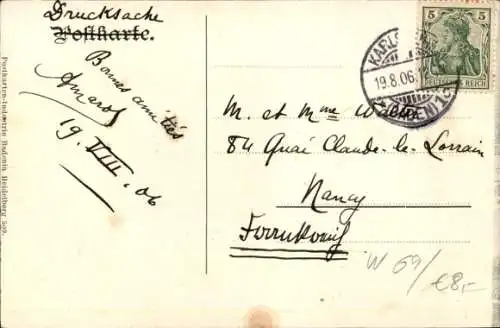 Drucksache
Postkarte.
Bonnes amitiés
19. VIII. 06
M. et Mme
84 Quai Claude-le-Lorrain
Nancy
Frankreich
KARLS
19.8.06.
(BADEN) 1
5 5
REICH
W 69/
€8,-
Postkarten-Industrie Badenia Heidelberg